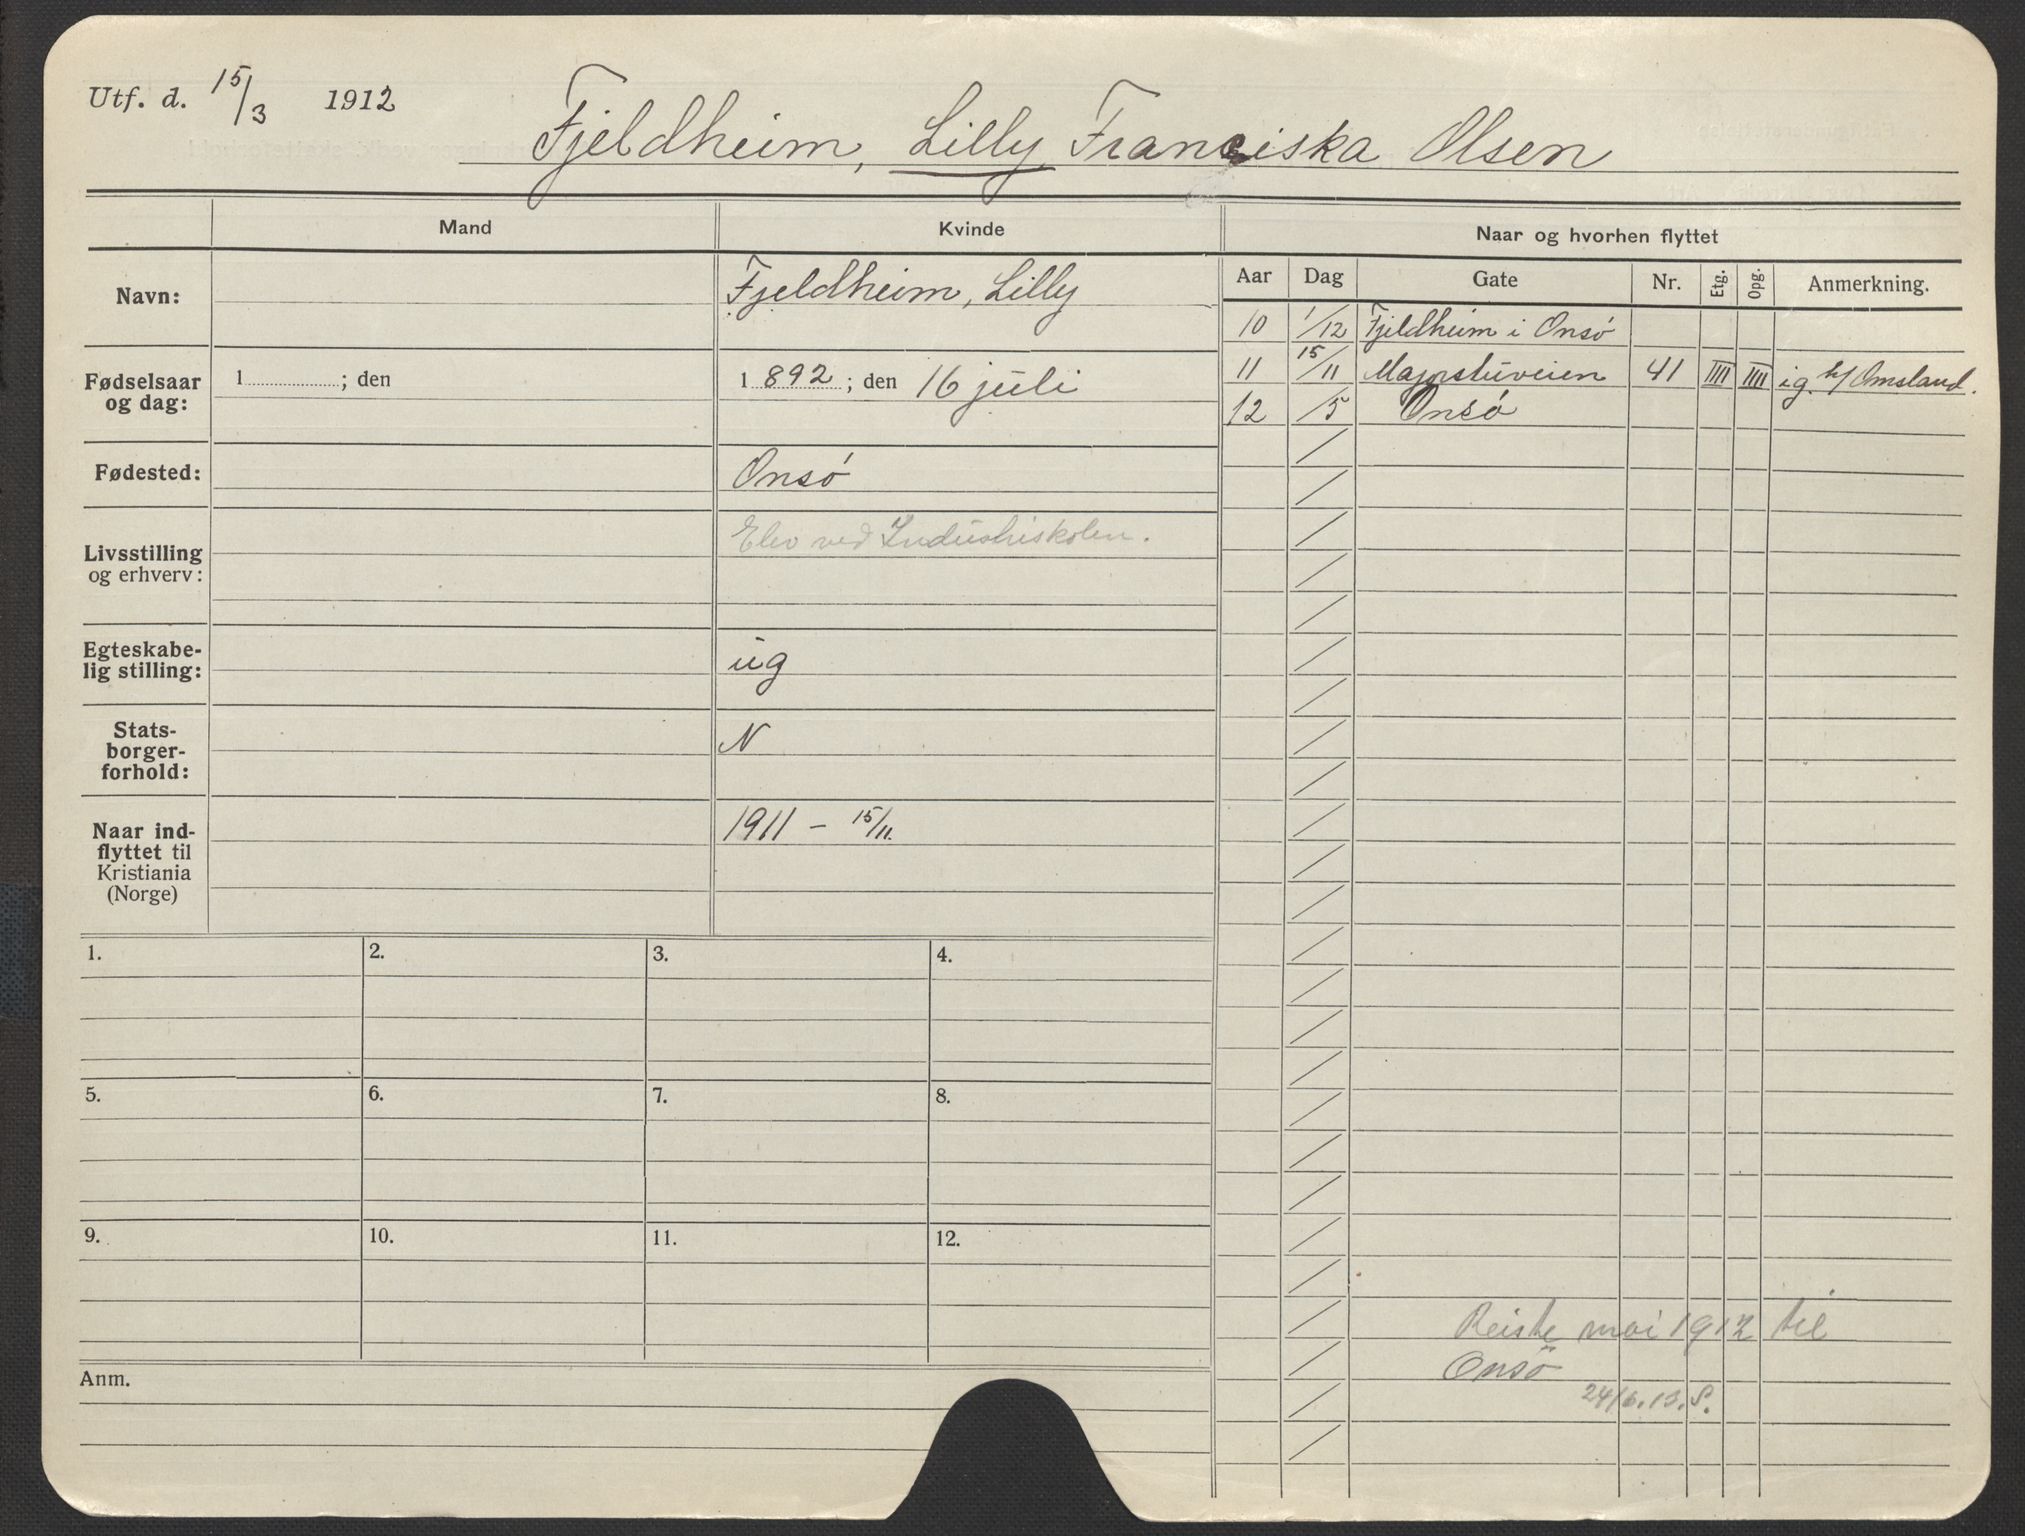 Utf. d. 15/3 1912
Fjeldheim, Lilly Franciska Olsen
Mand
Kvinde
Naar og hvorhen flyttet
Aar Dag Gate Nr. Etg. Opg. Anmerkning.
Navn: Fjeldheim, Lilly
10 1/12 Fjeldheim i Onsø
11 15/11 Majorstuveien 41 IIII IIII ig. h/ Omsland.
12 /5 Onsø
Fødselsaar
og dag:
1 ; den
1 892 ; den 16 juli
Fødested: Onsø
Livsstilling
og erhverv:
Elev ved Industriskolen.
Egteskabe-
lig stilling:
ug
Stats-
borger-
forhold:
N
Naar ind-
flyttet til
Kristiania
(Norge)
1911 – 15/11.
1. 2. 3. 4.
5. 6. 7. 8.
9. 10. 11. 12.
Anm.
Reiste mai 1912 til
Onsø
24/6.13. S.